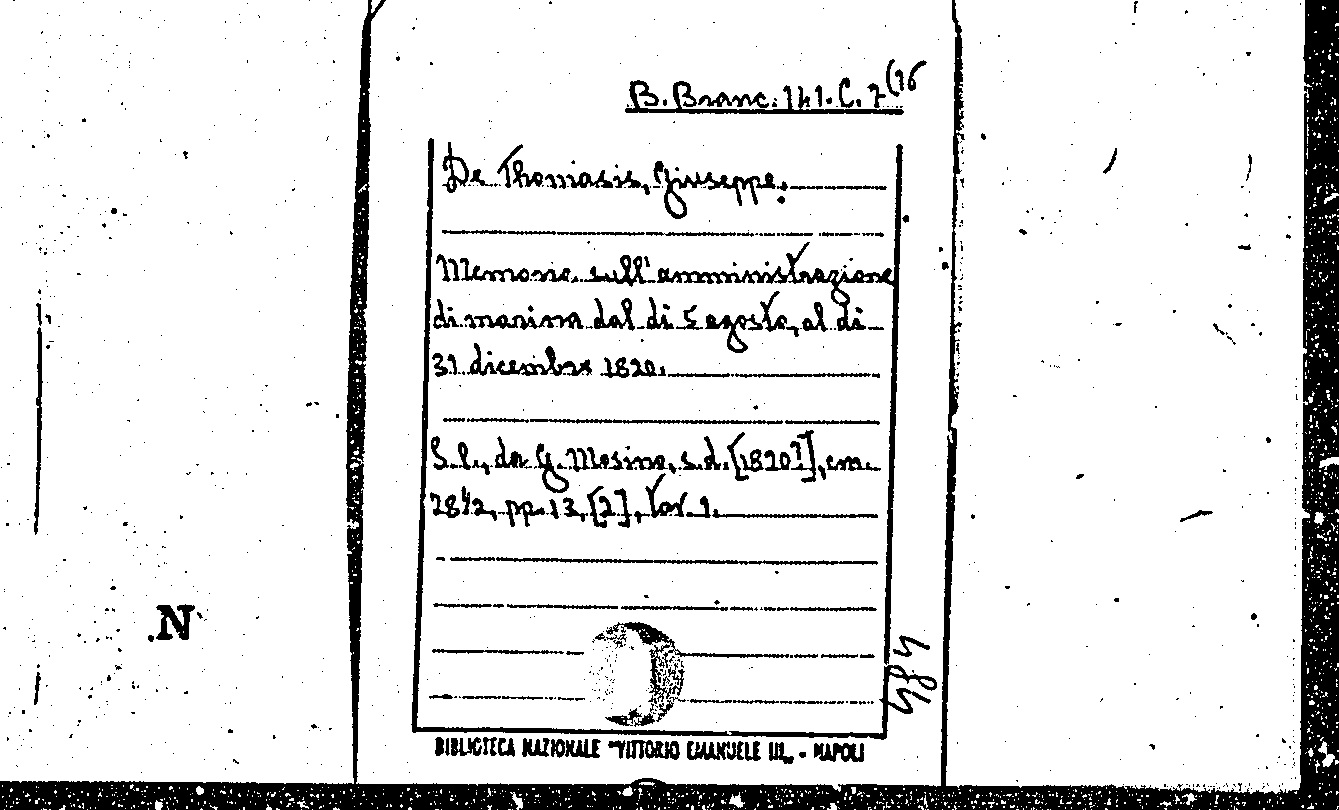 B. Branc. 141. C. 7 (16
De Thomasis, Giuseppe.
Memoria sull'amministrazione
di marina dal di 5 agosto, al di
31 dicembre 1820.
S.l., da G. Mosino, s.d. [1820?], cm.
28½, pp. 13, [2], tav. 1.
N
484
BIBLIOTECA NAZIONALE "VITTORIO EMANUELE III„ - NAPOLI